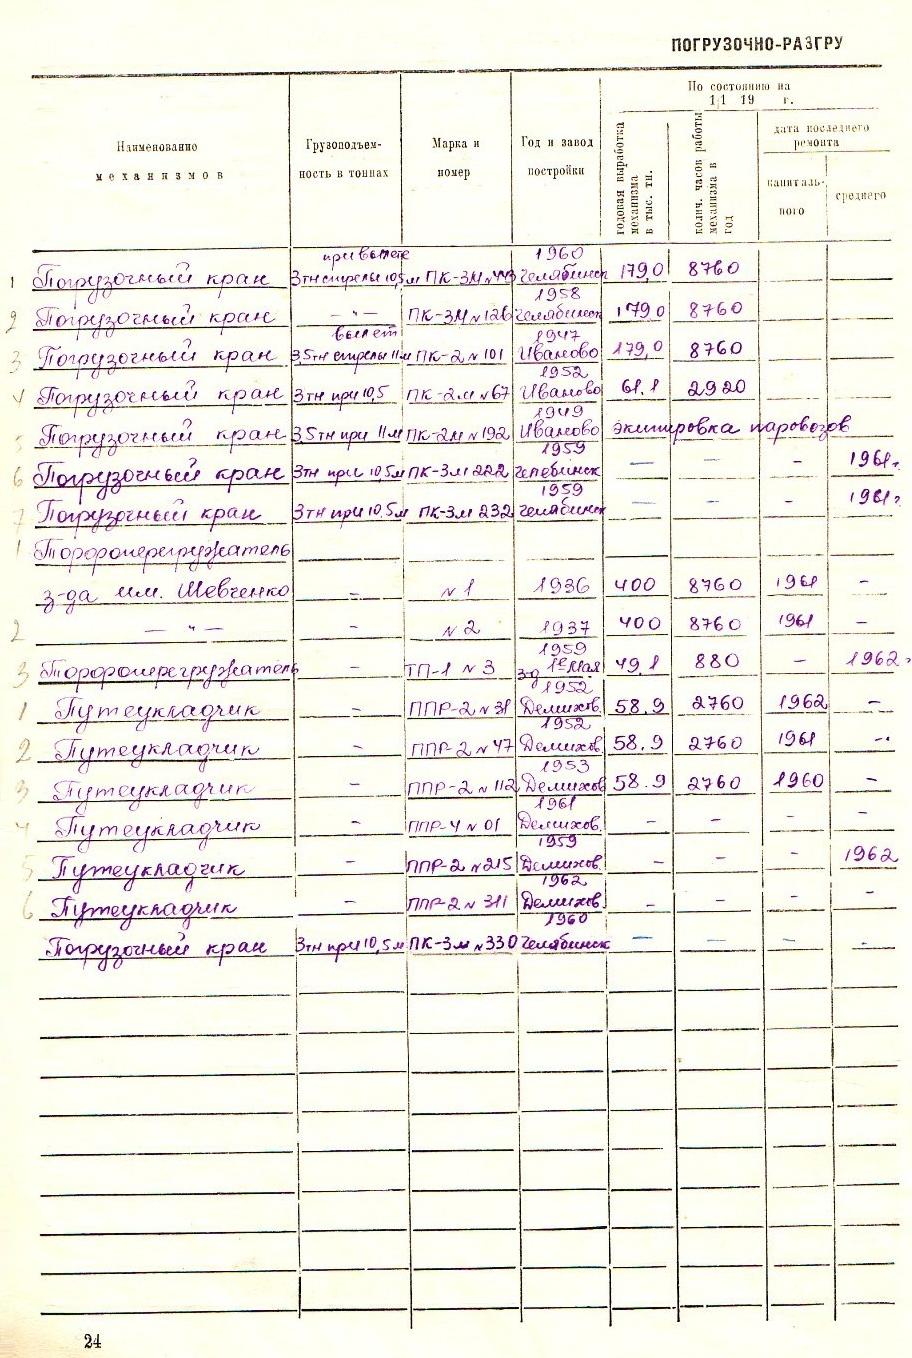 ПОГРУЗОЧНО-РАЗГРУ
Наименование механизмов
Грузоподъем-ность в тоннах
Марка и номер
Год и завод постройки
По состоянию на 1/1 19 г.
годовая выработка механизма в тыс. тн.
колич. часов работы механизма в год
дата последнего ремонта
капиталь-ного
среднего
1 Погрузочный кран при вылете 3тн стрелы 10,5м ПК-3М 1960 Челябинск 179,0 8760
2 Погрузочный кран —"— ПК-3М №126 1958 Челябинск 179,0 8760
3 Погрузочный кран вылет 3 5тн стрелы 11м ПК-2 №101 1947 Иваново 179,0 8760
4 Погрузочный кран 3тн при 10,5 ПК-2м №67 1952 Иваново 61.1 2920
5 Погрузочный кран 3 5тн при 11м ПК-2м №192 1949 Иваново экипировка паровозов
6 Погрузочный кран 3тн при 10,5м ПК-3м 222 1959 Челебинск — — - 1961г.
7 Погрузочный кран 3тн при 10,5м ПК-3м 232 1959 Челябинск — - - 1961г
1 Торфоперегружатель
з-да им. Шевченко - №1 1936 400 8760 1961 -
2 —"— - №2 1937 400 8760 1961 -
3 Торфоперегружатель - ТП-1 №3 1959 з-д 1е Мая 49,1 880 - 1962г
1 Путеукладчик - ППР-2 №31 1952 Демихов. 58.9 2760 1962 -
2 Путеукладчик - ППР-2 №47 1952 Демихов. 58.9 2760 1961 -
3 Путеукладчик - ППР-2 №112 1953 Демихов 58.9 2760 1960 -
4 Путеукладчик - ППР-4 №01 1961 Демихов. - - - -
5 Путеукладчик - ППР-2 №215 1959 Демихов. - - - 1962
6 Путеукладчик - ППР-2 №311 1962 Демихов. - - - -
Погрузочный кран 3тн при 10,5м ПК-3м №330 1960 Челябинск — — - -
24